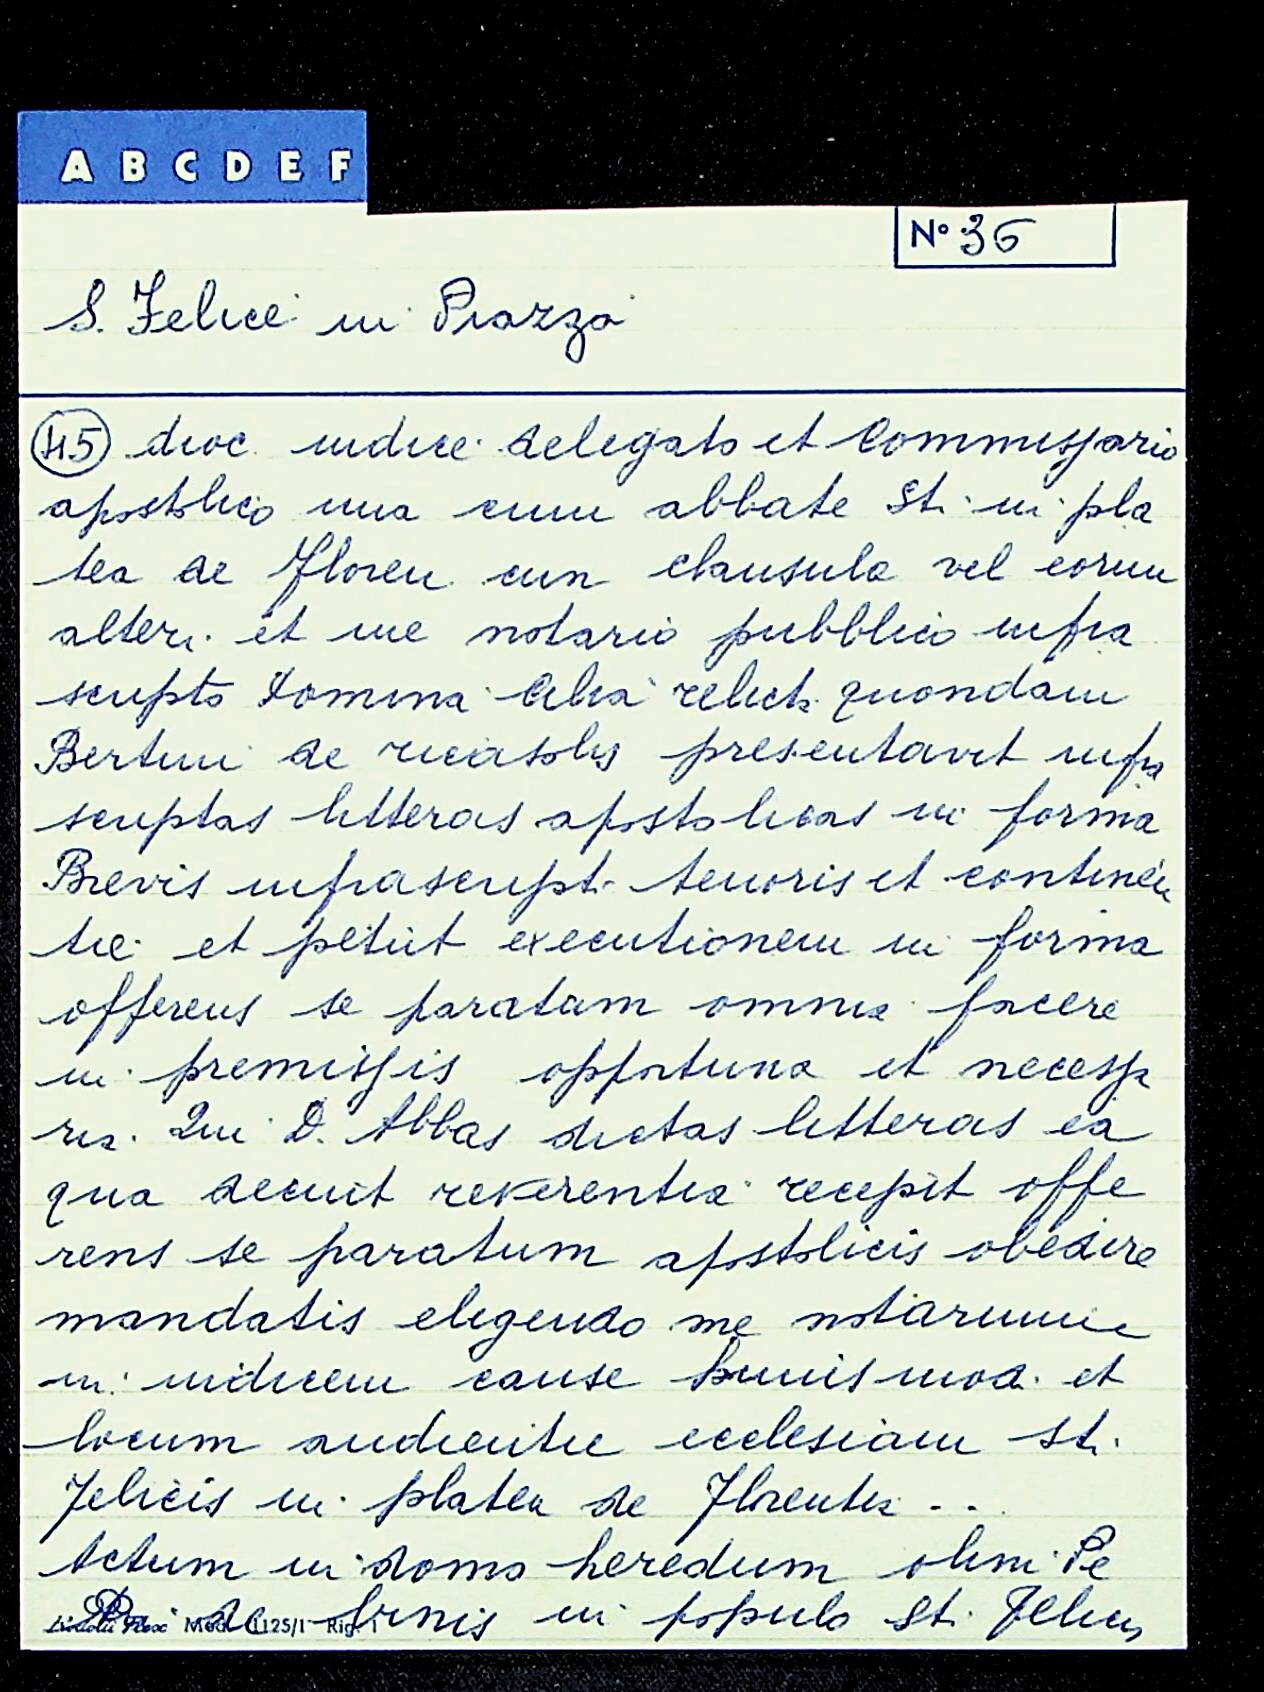 A B C D E F
N° 36
S. Felice in Piazza
45 dioc. iudice delegato et Commissario
apostolico una cum abbate Sti in pla
tea de Floren. cun clausula vel eorum
alteri. et me notario pubblico infra
scripto Domina relict. quondam
Bertini de ricasolis presentavit infra
scriptas litteras apostolicas in forma
Brevis infrascript. tenoris et continen
tie et petiit executionem in forma
offerens se paratam omnia facere
in premissis opportuna et necessa
ria. Qui D. Abbas dictas litteras ea
qua decuit reverentia recepit offe
rens se paratum apostolicis obedire
mandatis eligendo me notarium
in iudicem cause huiusmod. et
locum audientie ecclesiam Sti.
Felicis in platea de Florentia ..
Actum in domo heredum olim Pe
de in populo Sti. Felicis
Mod. 1125/1 Rig. 1